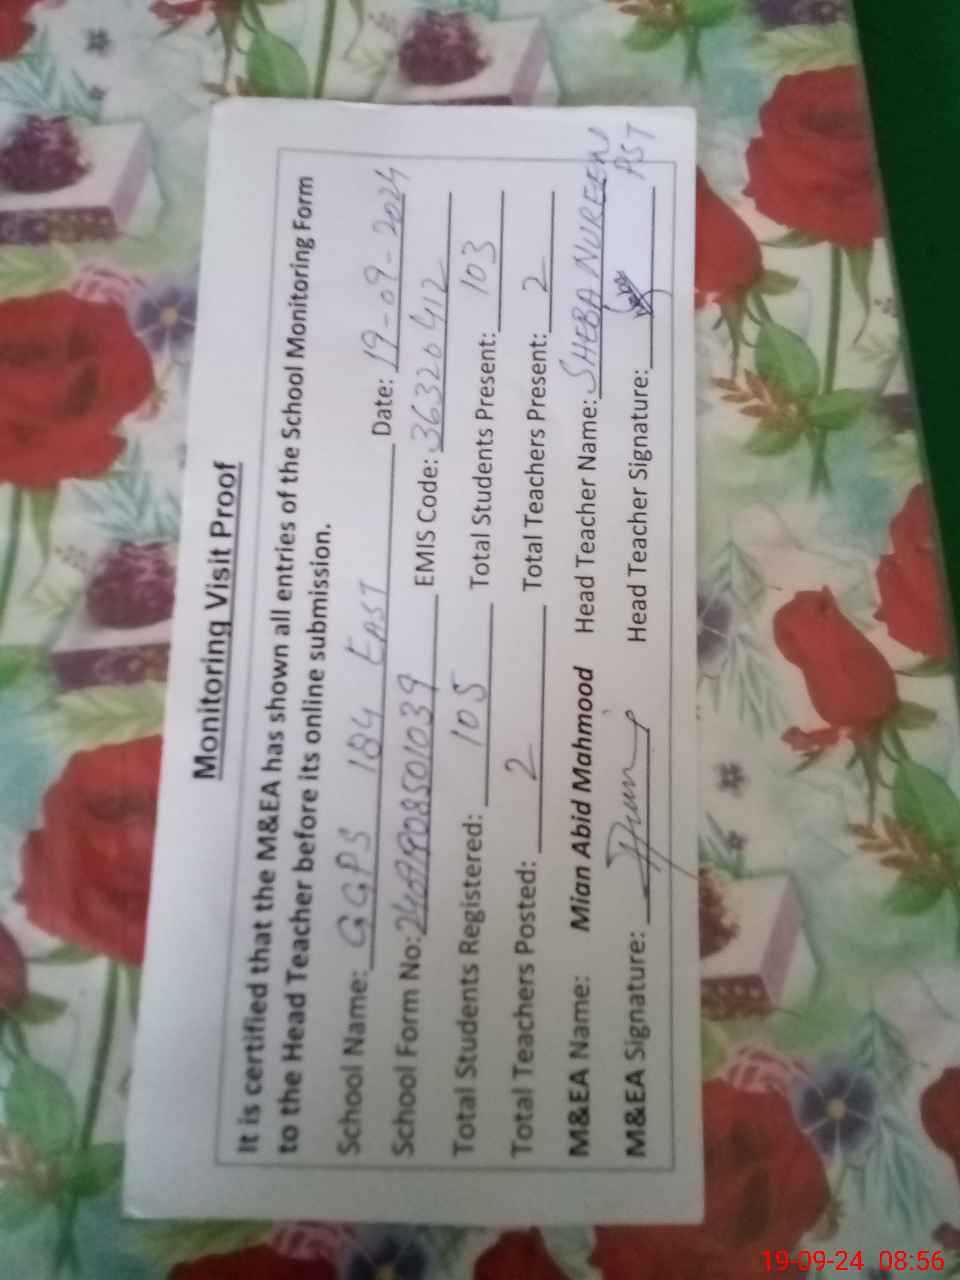 Monitoring Visit Proof
It is certified that the M&EA has shown all entries of the School Monitoring Form
to the Head Teacher before its online submission.
School Name: GGPS 184 EAST Date: 19-09-2024
School Form No: EMIS Code: 36320412
Total Students Registered: 105 Total Students Present: 103
Total Teachers Posted: 2 Total Teachers Present: 2
M&EA Name: Mian Abid Mahmood Head Teacher Name: SHEBA NUREEN
M&EA Signature: Head Teacher Signature: PST
19-09-24 08:56